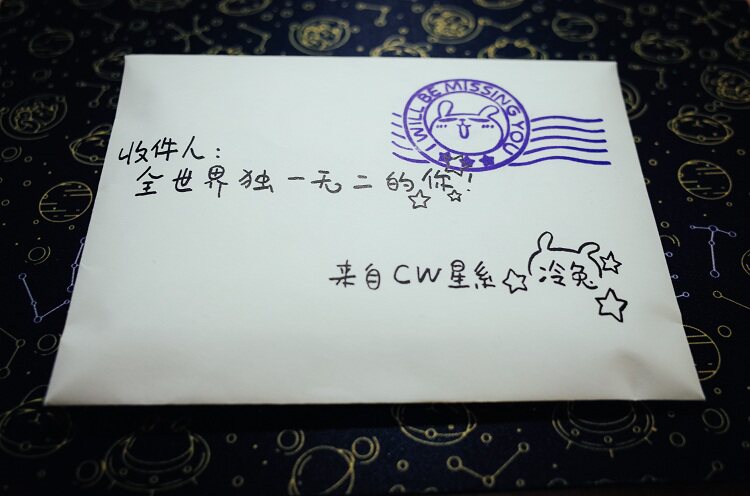 I WILL BE MISSING YOU
收件人：
全世界独一无二的你！
来自CW星系 冷兔